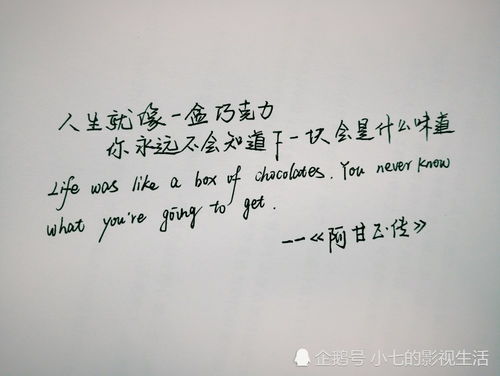 人生就像一盒巧克力
你永远不会知道下一块会是什么味道
Life was like a box of chocolates. You never know
what you're going to get.
--《阿甘正传》
企鹅号 小七的影视生活